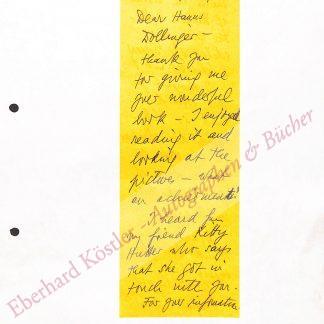 Dear Hanns
Dollinger –
thank you
for giving me
your wonderful
book – I enjoyed
reading it and
looking at the
pictures – what
an achievement!
I heard from
my friend Kitty
who says
that she got in
touch with you.
For your information
Eberhard Köstler Autographen & Bücher